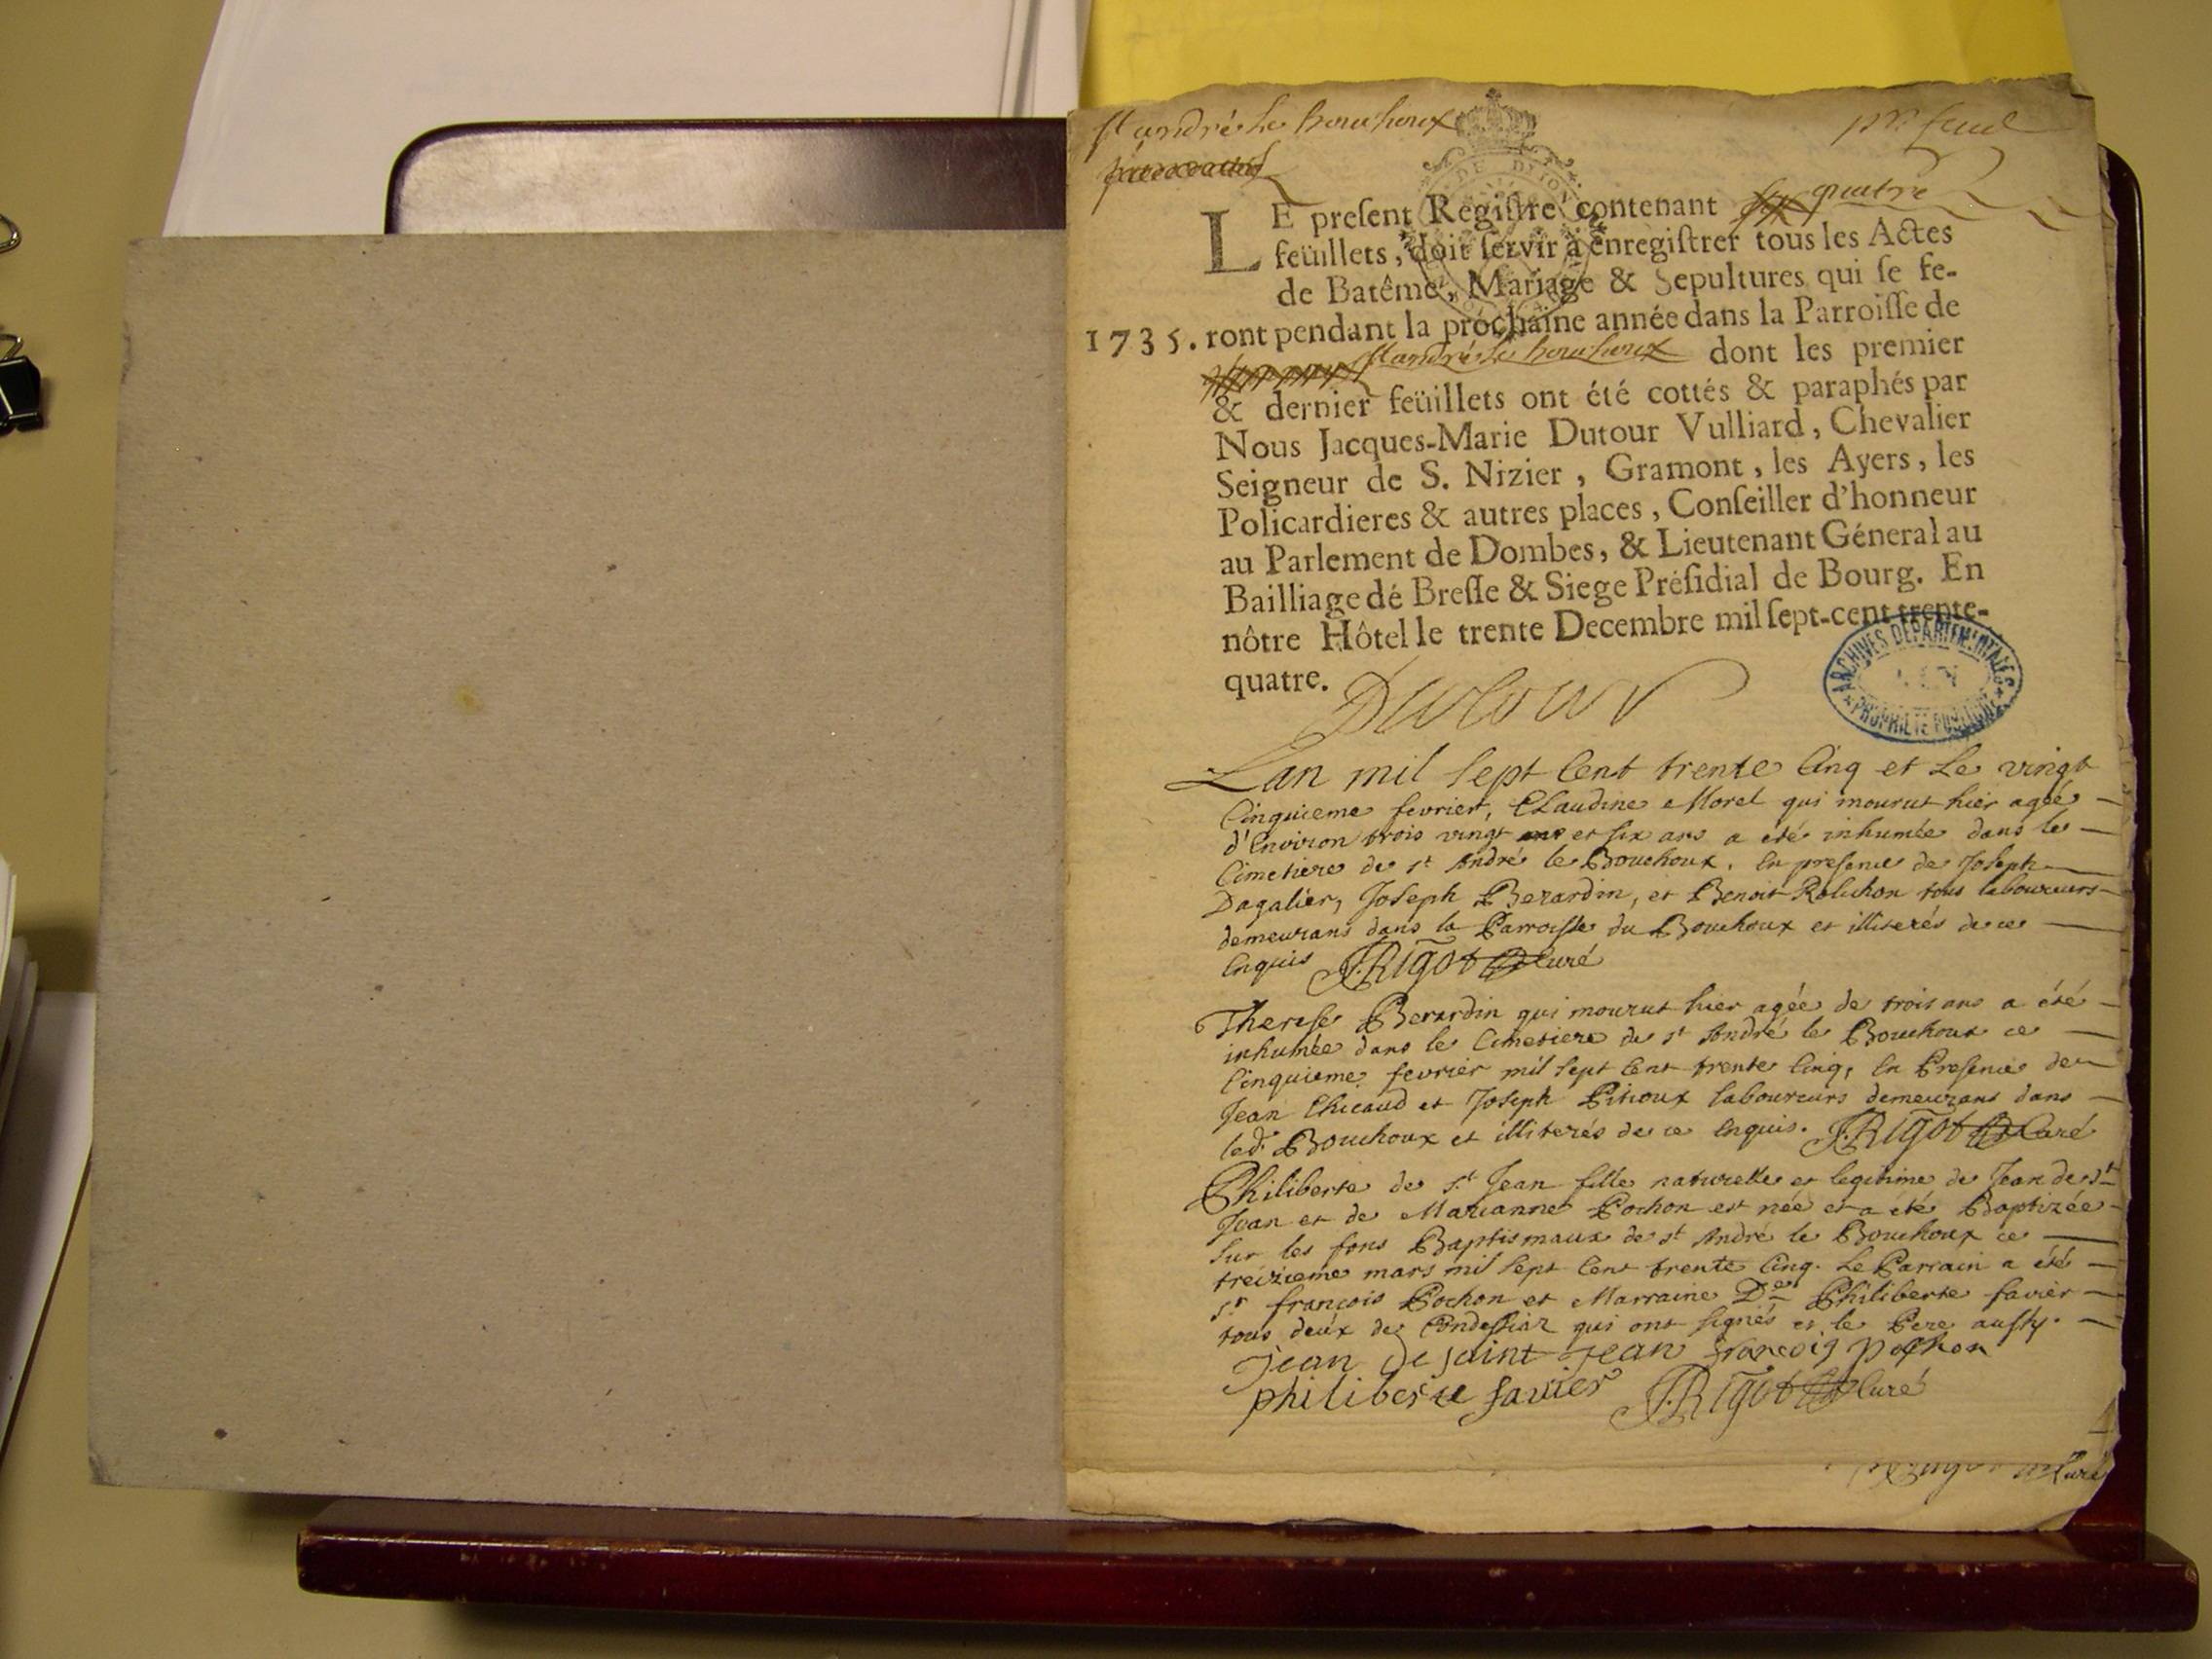 st andré le bouchoux
pr. feuil
LE present Registre contenant quatre
feüillets, doit servir à enregistrer tous les Actes
de Batême, Mariage & Sepultures qui se fe-
1735. ront pendant la prochaine année dans la Parroisse de
st andré le bouchoux dont les premier
& dernier feüillets ont été cottés & paraphés par
Nous Jacques-Marie Dutour Vulliard, Chevalier
Seigneur de S. Nizier, Gramont, les Ayers, les
Policardieres & autres places, Conseiller d'honneur
au Parlement de Dombes, & Lieutenant Géneral au
Bailliage dé Bresse & Siege Présidial de Bourg. En
nôtre Hôtel le trente Decembre mil sept-cent trente-
quatre.
Dutour
ARCHIVES DEPARTEMENTALES
AIN
PROPRIETE PUBLIQUE
Lan mil sept Cent trente Cinq et Le vingt
Cinquieme fevrier, Claudine Morel qui mourut hier agée
d'Environ trois vingt et six ans a eté inhumée dans le
Cimetiere de st André le Bouchoux. En presence de Joseph
Dagalier, Joseph Berardin, et Benoit Roluchon tous laboureurs
demeurans dans la Parroisse du Bouchoux et illiterés de ce
Enquis J. Rigot Curé
Therese Berardin qui mourut hier agée de trois ans a été
inhumée dans le Cimetiere de st André le Bouchoux ce
Cinquieme fevrier mil sept Cent trente Cinq, En Presence de
Jean Chicaud et Joseph Pitioux laboureurs demeurans dans
led. Bouchoux et illiterés de ce Enquis. J. Rigot Curé
Philiberte de st Jean fille naturelle et legitime de Jean de st
Jean et de Marianne Pochon est née et a été Baptizée
sur les fons Baptismaux de st André le Bouchoux ce
treizieme mars mil sept Cent trente Cinq. Le Parrain a été
sr françois Pochon et Marraine De Philiberte favier
tous deux de Condessiaz qui ont signés et le Pere aussy.
jean de saint jean françois pochon
philiberte favier J. Rigot Curé
Curé